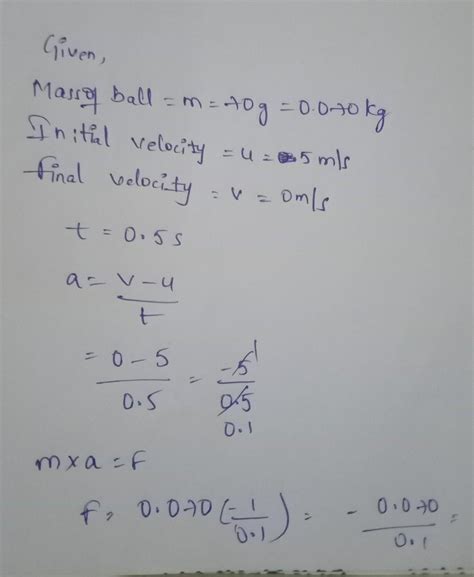 Given,
Mass of ball = m = 70g = 0.070 kg
Initial velocity = u = 5 m/s
final velocity = v = 0m/s
t = 0.5 s
a = v - u / t
= 0 - 5 / 0.5 = -5 1 / 0.5 0.1
m x a = F
f = 0.070 (-1 / 0.1) = - 0.070 / 0.1 =